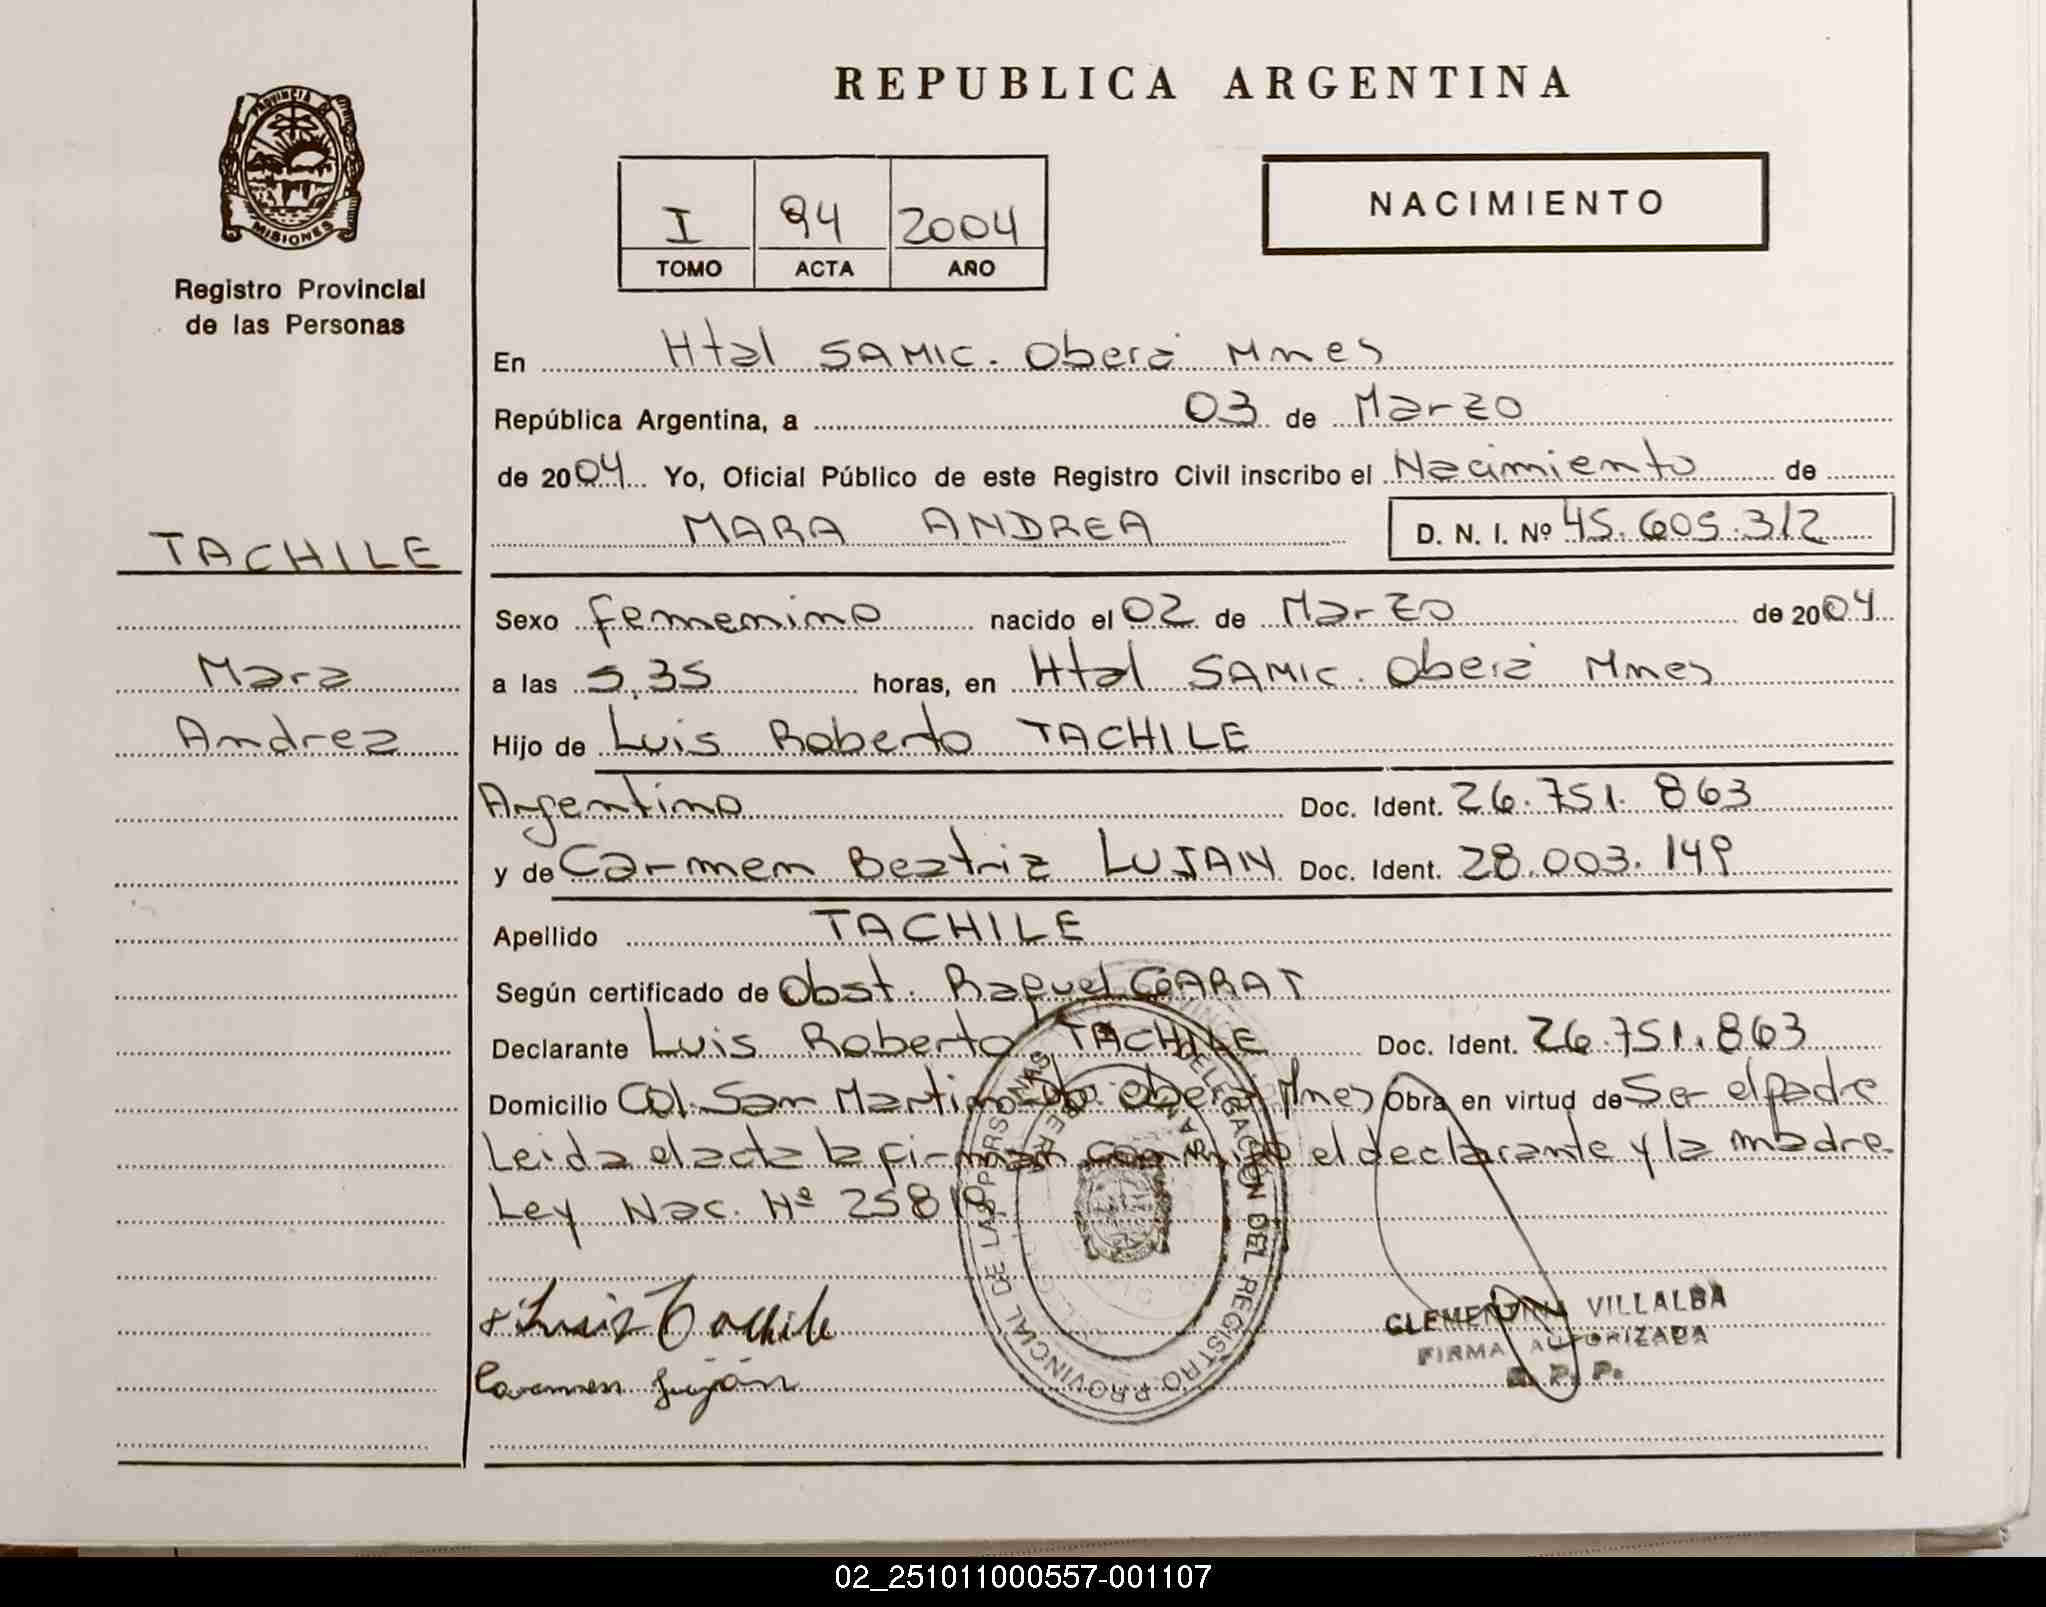 REPUBLICA ARGENTINA
PROVINCIA DE
MISIONES
Registro Provincial
de las Personas
I 94 2004
TOMO ACTA AÑO
NACIMIENTO
En Htal SAMIC. Oberá Mnes
República Argentina, a 03 de Marzo
de 2004 Yo, Oficial Público de este Registro Civil inscribo el Nacimiento de
MARA ANDREA D. N. I. Nº 45.605.312
TACHILE
Mara
Andrea
Sexo femenino nacido el 02 de Marzo de 2004
a las 5.35 horas, en Htal SAMIC. Oberá Mnes
Hijo de Luis Roberto TACHILE
Argentino Doc. Ident. 26.751.863
y de Carmen Beatriz LUJAN Doc. Ident. 28.003.149
Apellido TACHILE
Según certificado de Obst. Raquel GARAT
Declarante Luis Roberto TACHILE Doc. Ident. 26.751.863
Domicilio Col. San Martin Oberá Mnes Obra en virtud de Ser el padre
Leida el acta la firman conmigo el declarante y la madre.
Ley Nac. Nº 25819
DELEGACION DEL REGISTRO PROVINCIAL DE LAS PERSONAS
Luis Tachile
Carmen Luján
CLEMENTINA VILLALBA
FIRMA AUTORIZADA
R. P. P.
02_251011000557-001107